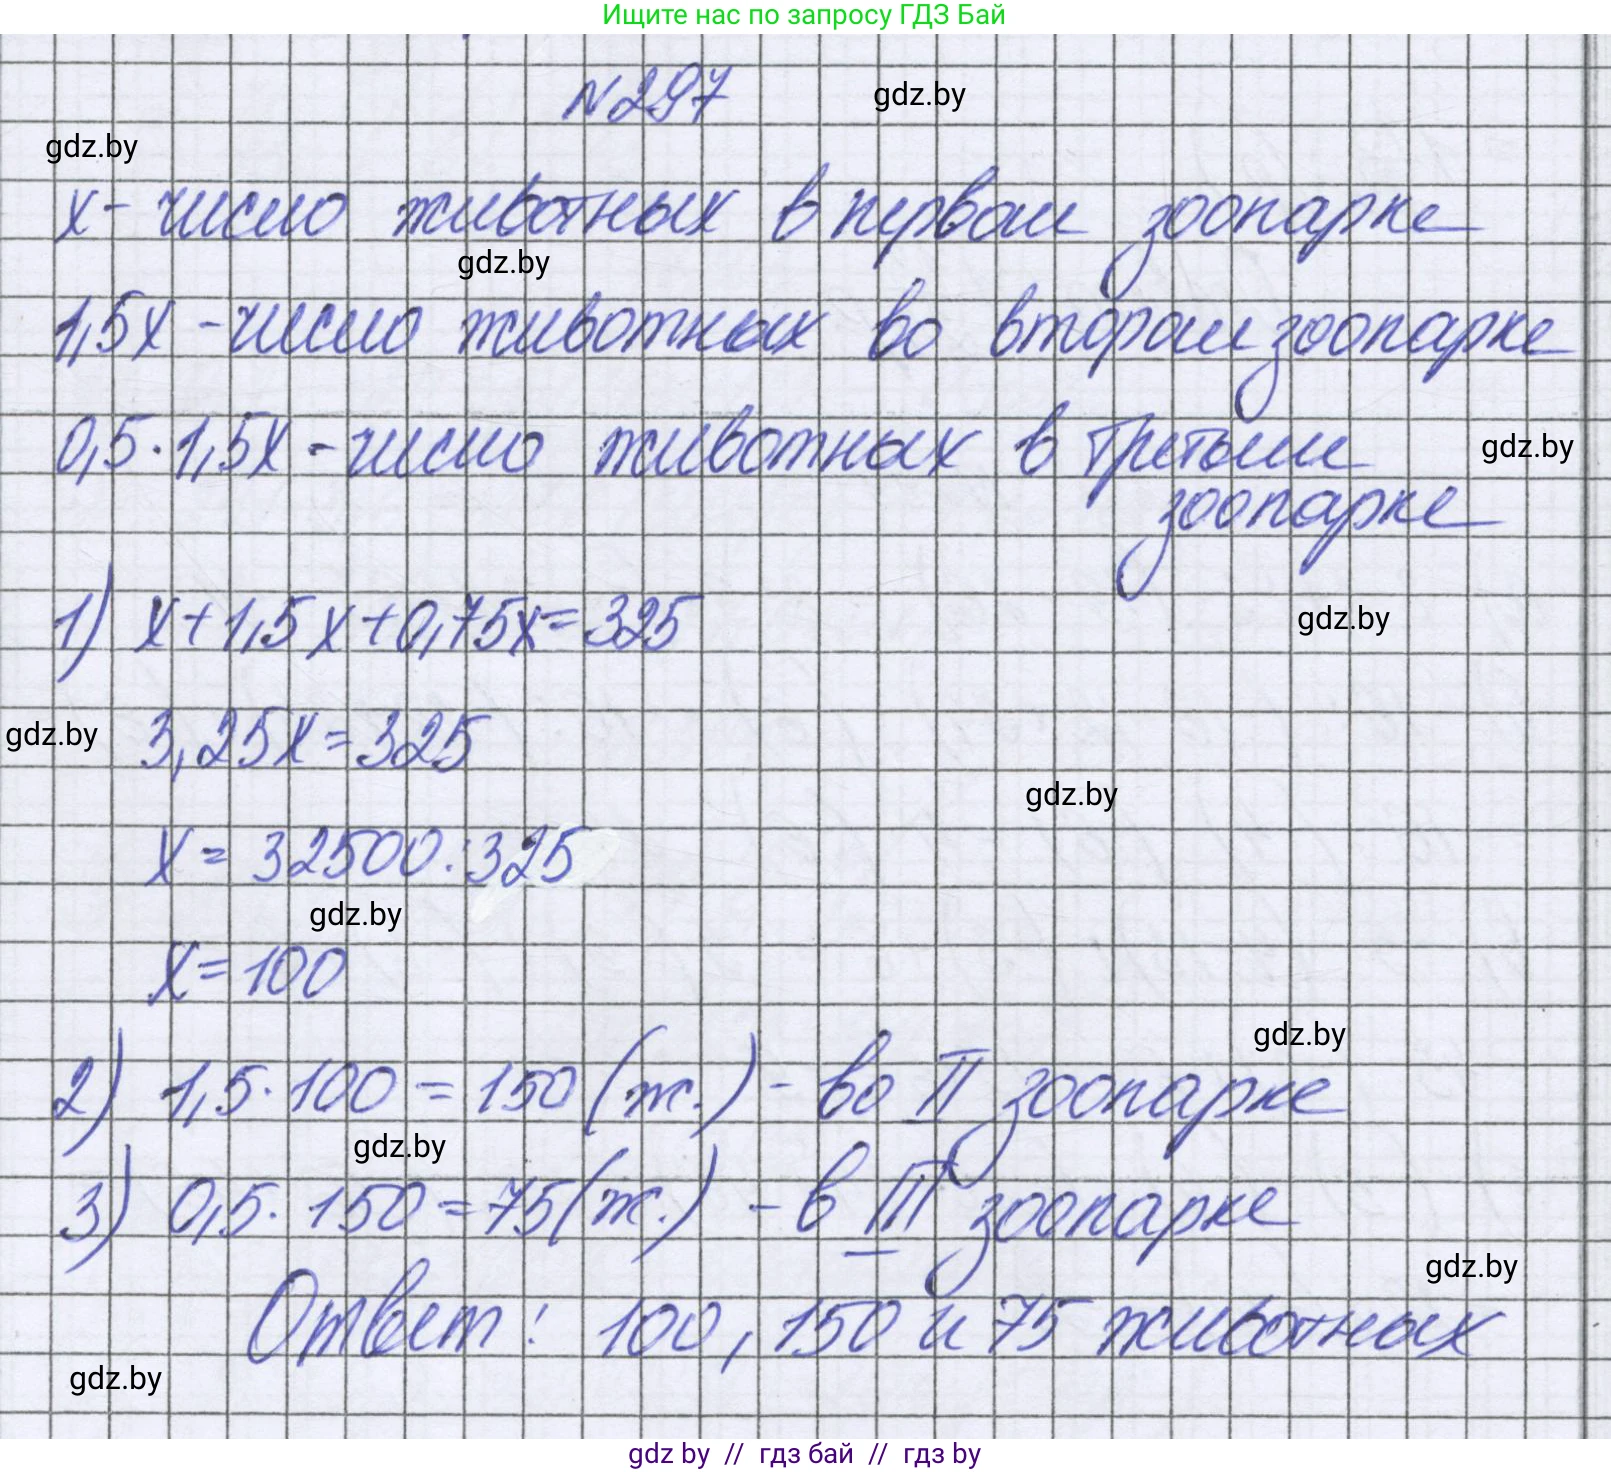 Ищите нас по запросу ГДЗ Бай
N297
gdz.by
gdz.by
x - число животных в первом зоопарке
gdz.by
1,5x - число животных во втором зоопарке
0,5 · 1,5x - число животных в третьем
gdz.by
зоопарке
1) x + 1,5x + 0,75x = 325
gdz.by
3,25x = 325
gdz.by
gdz.by
x = 32500 : 325
gdz.by
x = 100
gdz.by
2) 1,5 · 100 = 150 (ж.) - во II зоопарке
gdz.by
3) 0,5 · 150 = 75 (ж.) - в III зоопарке
gdz.by
Ответ: 100, 150 и 75 животных
gdz.by
gdz by // гдз бай // гдз by